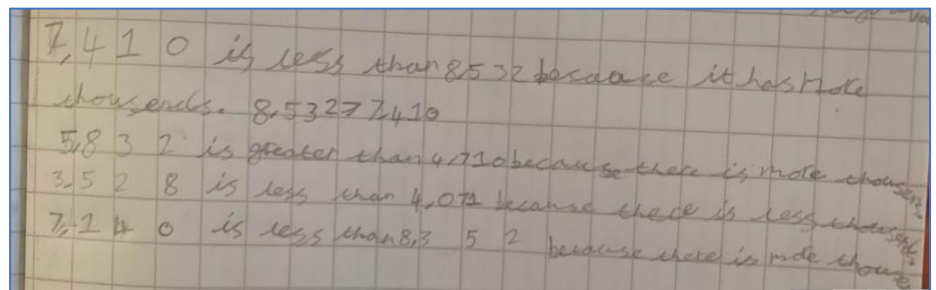 7,410 is less than 8,532 because it has more
thousends. 8,532 > 7,410
5,832 is greater than 4,710 because there is more thousen.
3,528 is less than 4,071 because there is less thousend.
7,140 is less than 8,352 because there is more thouse